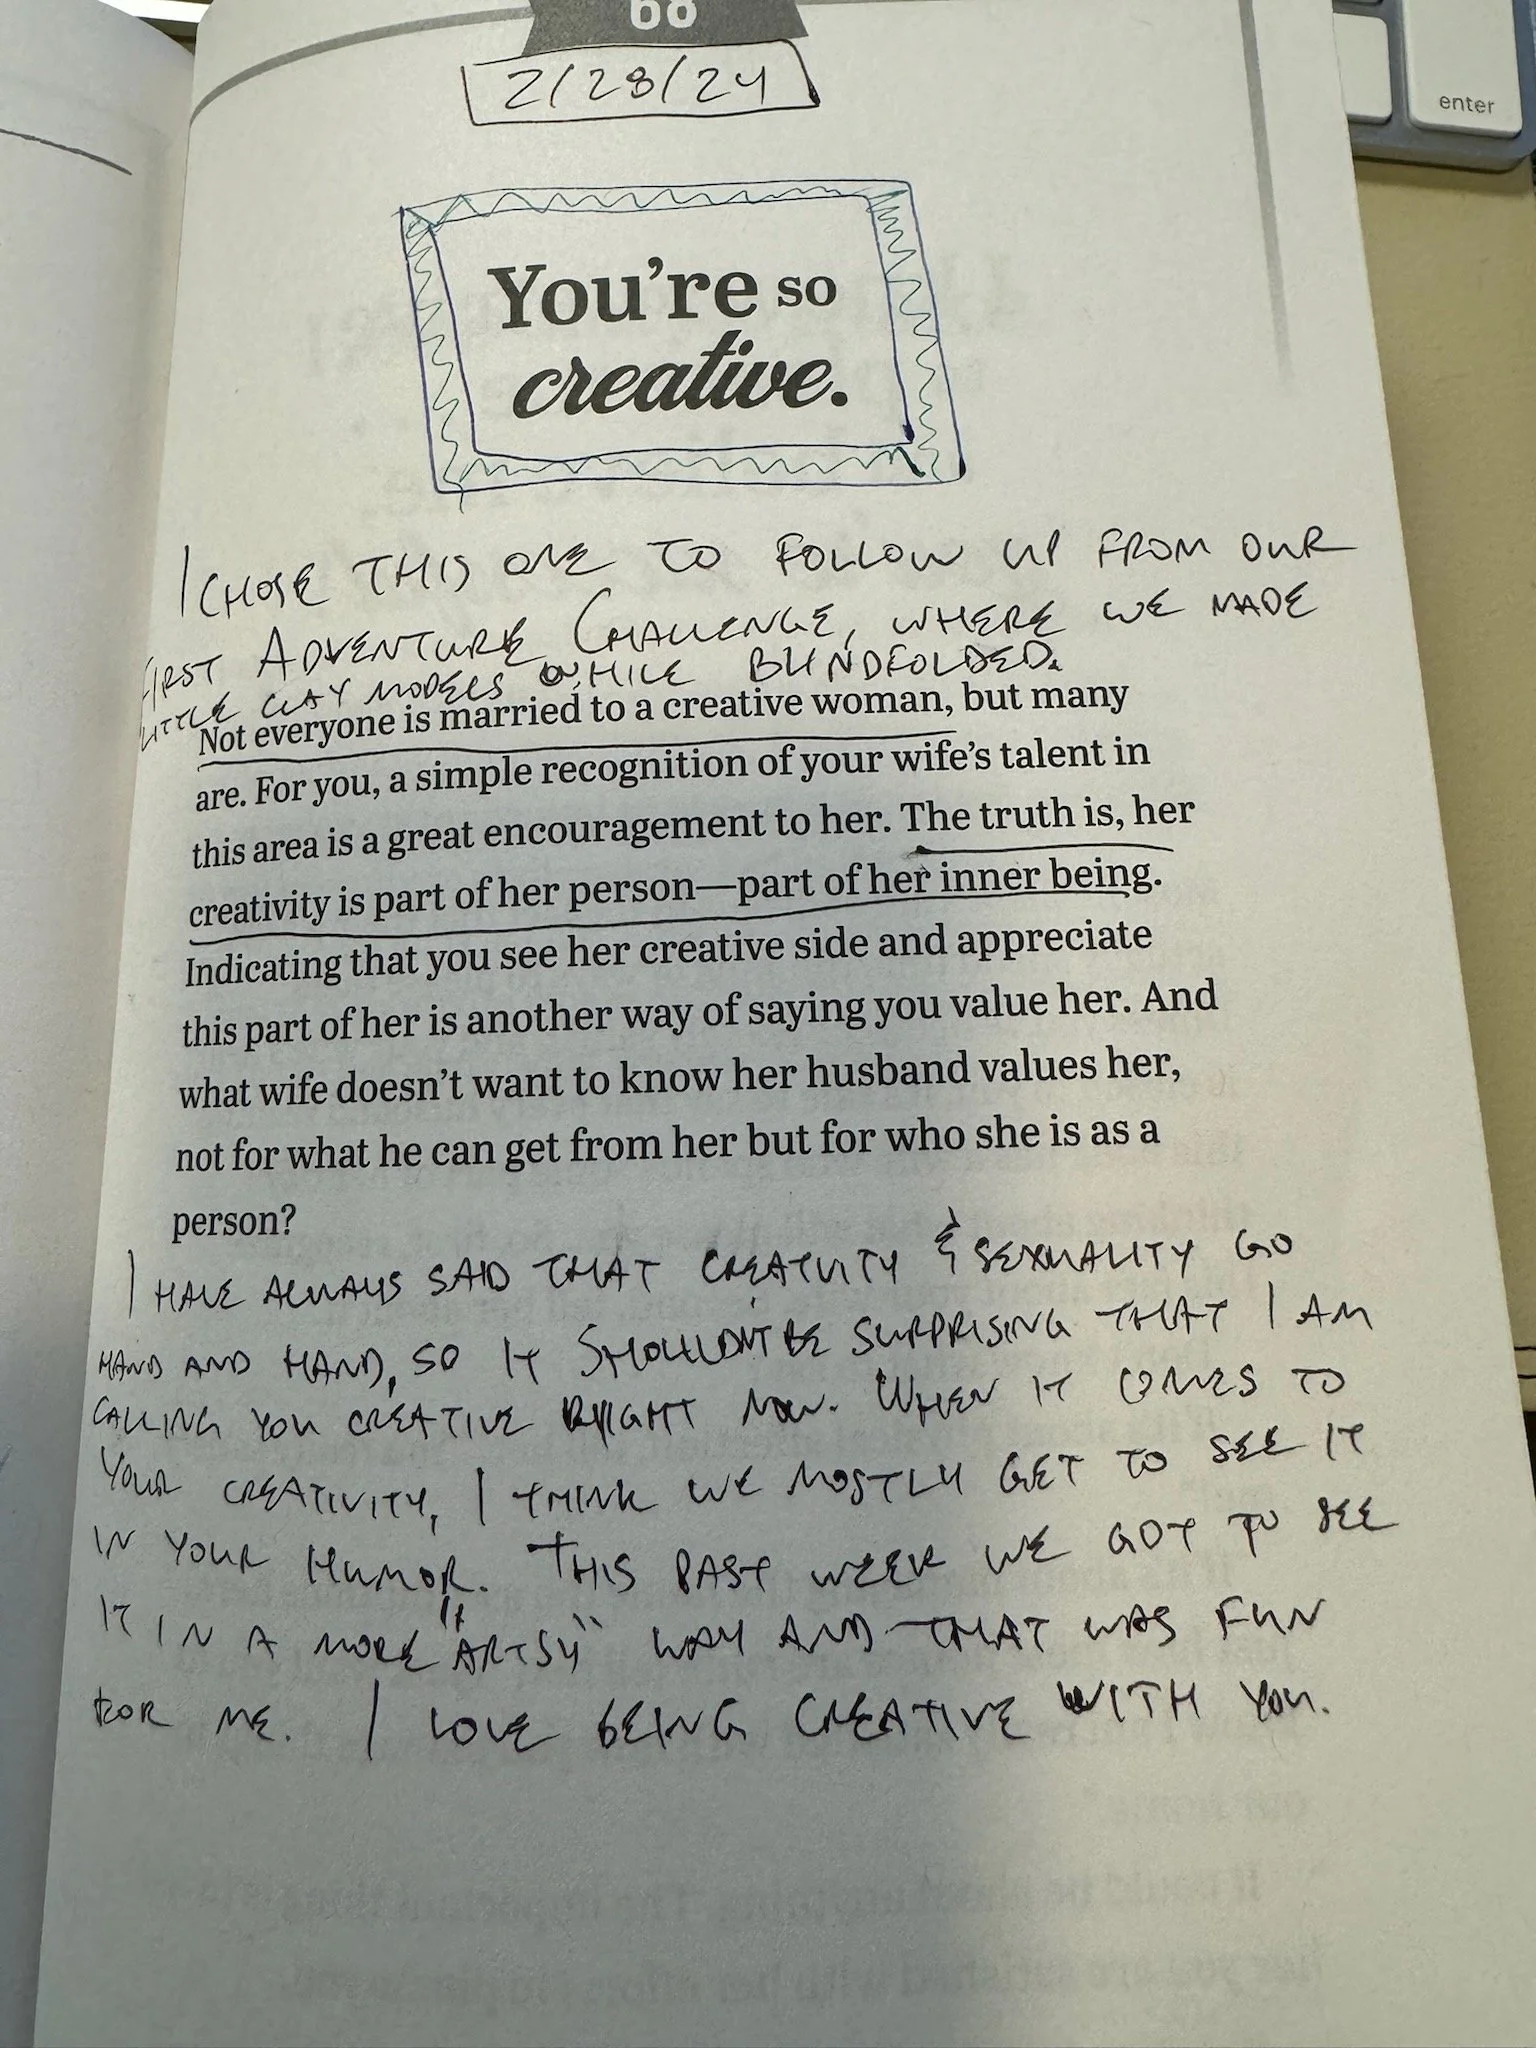 68
2/28/24
enter
You're so
creative.
I CHOSE THIS ONE TO FOLLOW UP FROM OUR
FIRST ADVENTURE CHALLENGE, WHERE WE MADE
LITTLE CLAY MODELS WHILE BLINDFOLDED.
Not everyone is married to a creative woman, but many
are. For you, a simple recognition of your wife's talent in
this area is a great encouragement to her. The truth is, her
creativity is part of her person—part of her inner being.
Indicating that you see her creative side and appreciate
this part of her is another way of saying you value her. And
what wife doesn't want to know her husband values her,
not for what he can get from her but for who she is as a
person?
I HAVE ALWAYS SAID THAT CREATIVITY & SEXUALITY GO
HAND AND HAND, SO IT SHOULDN'T BE SURPRISING THAT I AM
CALLING YOU CREATIVE RIGHT NOW. WHEN IT COMES TO
YOUR CREATIVITY, I THINK WE MOSTLY GET TO SEE IT
IN YOUR HUMOR. THIS PAST WEEK WE GOT TO SEE
IT IN A MORE "ARTSY" WAY AND THAT WAS FUN
FOR ME. I LOVE BEING CREATIVE WITH YOU.